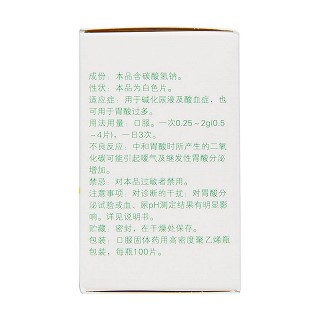 成份：本品含碳酸氢钠。
性状：本品为白色片。
适应症：用于碱化尿液及酸血症，也
可用于胃酸过多。
用法用量：口服。一次0.25－2g(0.5
－4片)，一日3次。
不良反应：中和胃酸时所产生的二氧
化碳可能引起嗳气及继发性胃酸分泌
增加。
禁忌：对本品过敏者禁用。
注意事项：对诊断的干扰：对胃酸分
泌试验或血、尿pH测定结果有明显影
响。详见说明书。
贮藏：密封，在干燥处保存。
包装：口服固体药用高密度聚乙烯瓶
包装，每瓶100片。